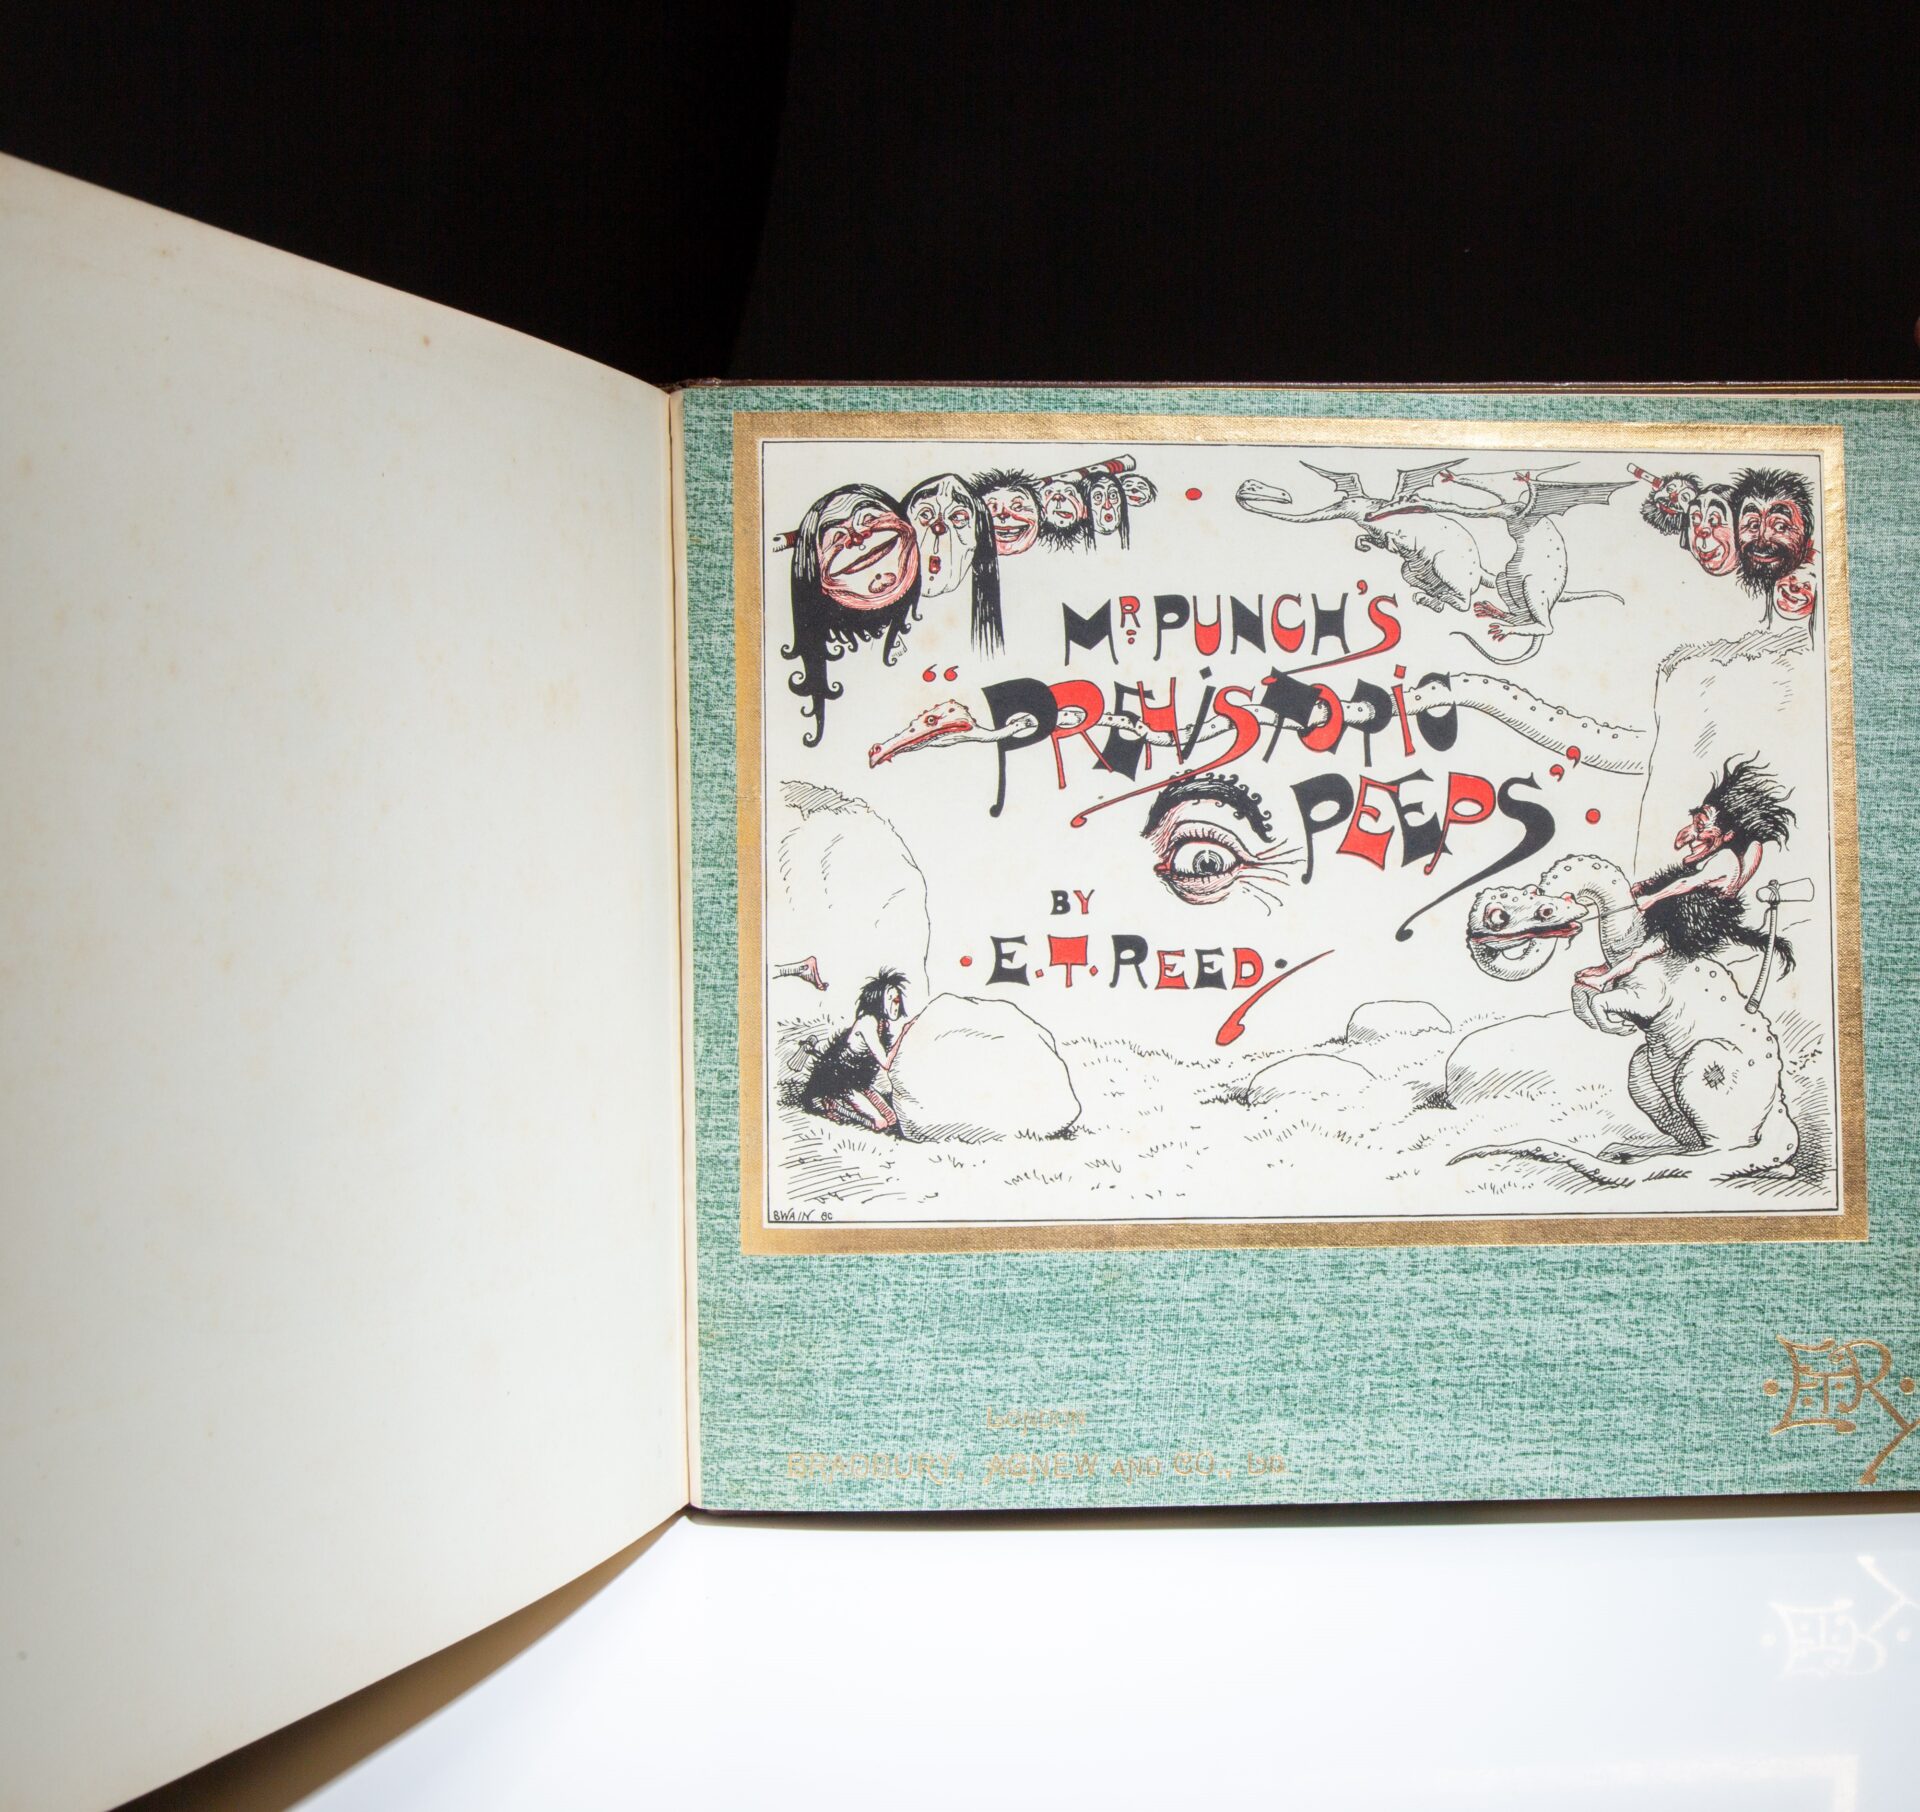 MR. PUNCH'S
"PREHISTORIC
PEEPS".
BY
· E. T. REED ·
SWAIN SC
LONDON
BRADBURY, AGNEW AND CO., LD.
· E.T.R ·